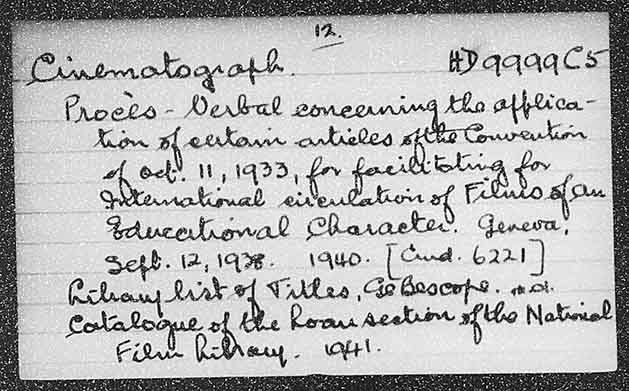 12.
Cinematograph. HD9999C5
Procès-Verbal concerning the applica-
tion of certain articles of the Convention
of Oct. 11, 1933, for facilitating for
International circulation of Films of an
Educational Character. Geneva,
Sept. 12, 1938. 1940. [Cmd. 6221]
Library list of Titles, GeBescope. n.d.
Catalogue of the Loan section of the National
Film Library. 1941.